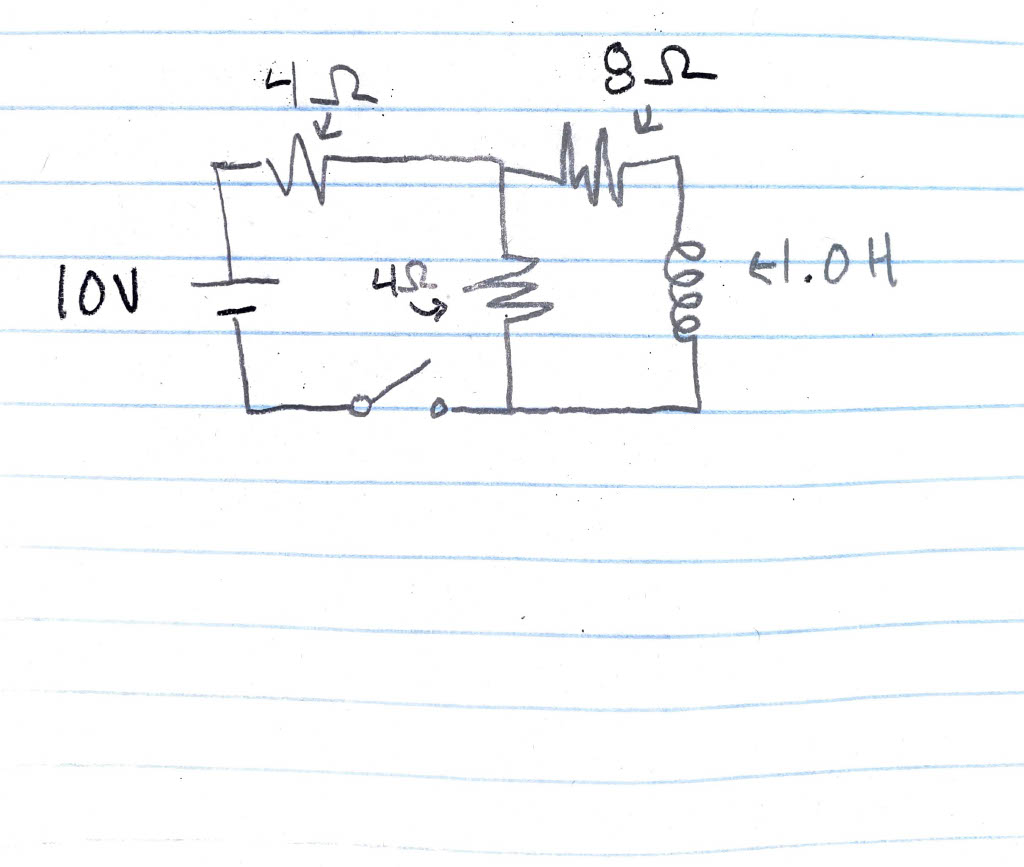 4Ω
8Ω
10V
4Ω
1.0H